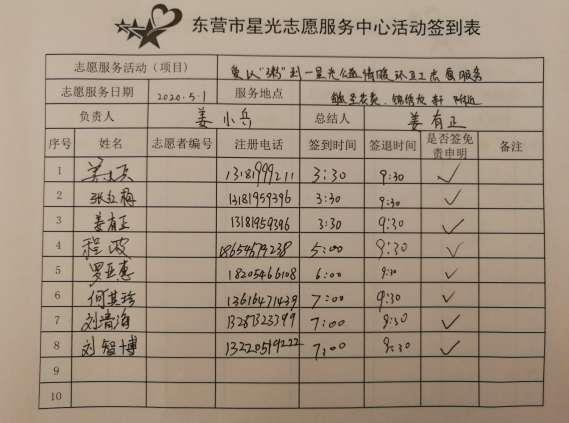 东营市星光志愿服务中心活动签到表
志愿服务活动（项目） 爱以"粥"到—星光公益情暖环卫工志愿服务
志愿服务日期 2020.5.1 服务地点
负责人 姜小兵 总结人 姜有正
序号 姓名 志愿者编号 注册电话 签到时间 签退时间 是否签免责申明 备注
1 姜小兵 13181999211 3:30 9:30 ✓
2 张立梅 13181959396 3:30 9:30 ✓
3 姜有正 13181959396 3:30 9:30 ✓
4 程波 5:00 9:30 ✓
5 罗亚惠 18205466108 6:00 9:30 ✓
6 何其珍 13616471439 7:00 9:30 ✓
7 刘清海 13287323399 7:00 9:30 ✓
8 刘智博 13220519222 7:00 9:30 ✓
9
10